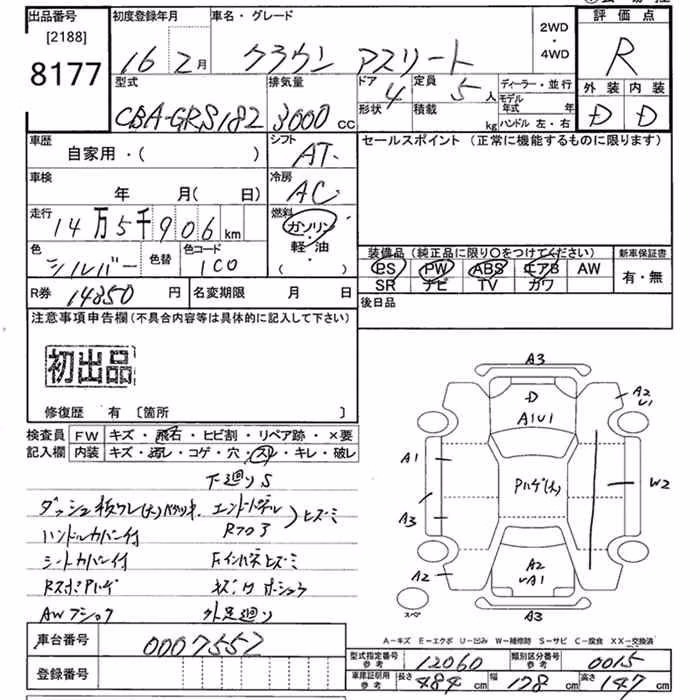 出品番号
[2188]
8177
初度登録年月
16 2月
車名・グレード
クラウン アスリート
2WD
・
4WD
評価点
R
外装 内装
D D
型式
CBA-GRS182
排気量
3000 cc
ドア 4
形状
定員 5人
積載 kg
ディーラー・並行
モデル
年式 年
ハンドル 左・右
車歴
自家用・( )
シフト
AT
セールスポイント (正常に機能するものに限ります)
車検
年 月( 日)
冷房
AC
走行
14万5千906km
燃料
ガソリン
・
軽・油
( )
色
シルバー
色替
色コード
1C0
装備品 (純正品に限り○をつけてください)
PS PW ABS エアB AW
SR ナビ TV カワ
新車保証書
有・無
R券 14350円
名変期限 月 日
後日品
注意事項申告欄(不具合内容等は具体的に記入して下さい)
初出品
修復歴 有 [箇所 ]
検査員
記入欄
FW キズ・飛石・ヒビ割・リペア跡・×要
内装 キズ・汚レ・コゲ・穴・スレ・キレ・破レ
下廻りS
ハンドルカバー付
シートカバー付
外足廻り
車台番号 0007552
登録番号
A3
D
A1U1
A2
U1
A1
A3
A2
Pハゲ(大)
W2
A2
A1
A3
スペア
A-キズ E-エクボ U-凹み W-補修跡 S-サビ C-腐食 XX-交換済
型式指定番号
参考
12060
類別区分番号
参考
0015
車庫証明用
参考
長さ 484cm
幅 178cm
高さ 147cm